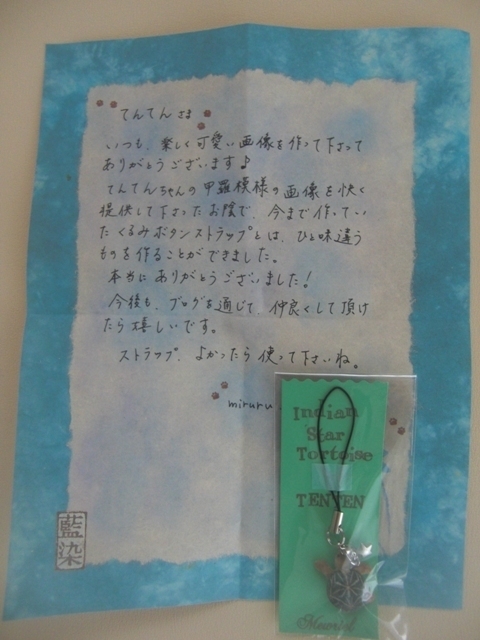 てんてん さま
いつも、楽しく可愛い画像を作って下さって
ありがとうございます♪
てんてんちゃんの甲羅模様の画像を快く
提供して下さったお陰で、今まで作ってい
たくるみボタンストラップとは、ひと味違う
ものを作ることができました。
本当にありがとうございました!
今後も、ブログを通じて、仲良くして頂け
たら嬉しいです。
ストラップ、よかったら使って下さいね。
miruru
Indian
Star
Tortoise
TENTEN
藍染